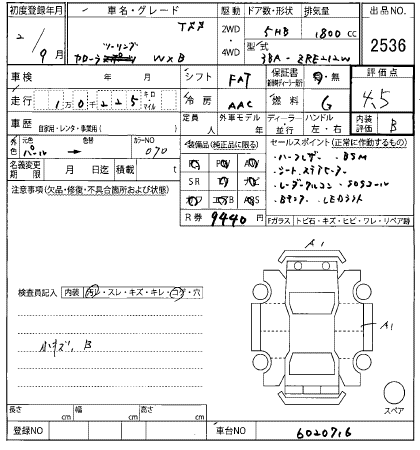 初度登録年月 車名・グレード 駆動 ドア数・形状 排気量 出品NO.
2/9月 カローラ ツーリング W×B 2WD・4WD 5HB 1800 CC 2536
型式 3BA-ZRE212W
車検 年 月 シフト FAT 保証書 有・無 評価点
走行 1万0千225 キロ マイル 冷房 AAC 燃料 G 4.5
車歴 自家用・レンタ・事業用( ) 定員 人 外車モデル 年 ディーラー・並行 ハンドル 左・右 内装評価 B
外色 元色 パール 色替 → カラーNO 070
装備品(純正品に限る) セールスポイント(正常に作動するもの)
名義変更期限 月 日迄 積載 t
・ハーフレザー ・BSM
SR
・シートヒーター
・レーダークルコン ・SOSコール
・Bモニター ・LEDライト
注意事項(欠品・修復・不具合箇所および状態)
R券 9440 円
Fガラス トビ石・キズ・ヒビ・ワレ・リペア跡
A1
検査員記入 内装 汚レ・スレ・キズ・キレ・コゲ・穴
A1
小キズ、B
スペア
長さ cm 幅 cm 高さ cm
登録NO 車台NO 6020716